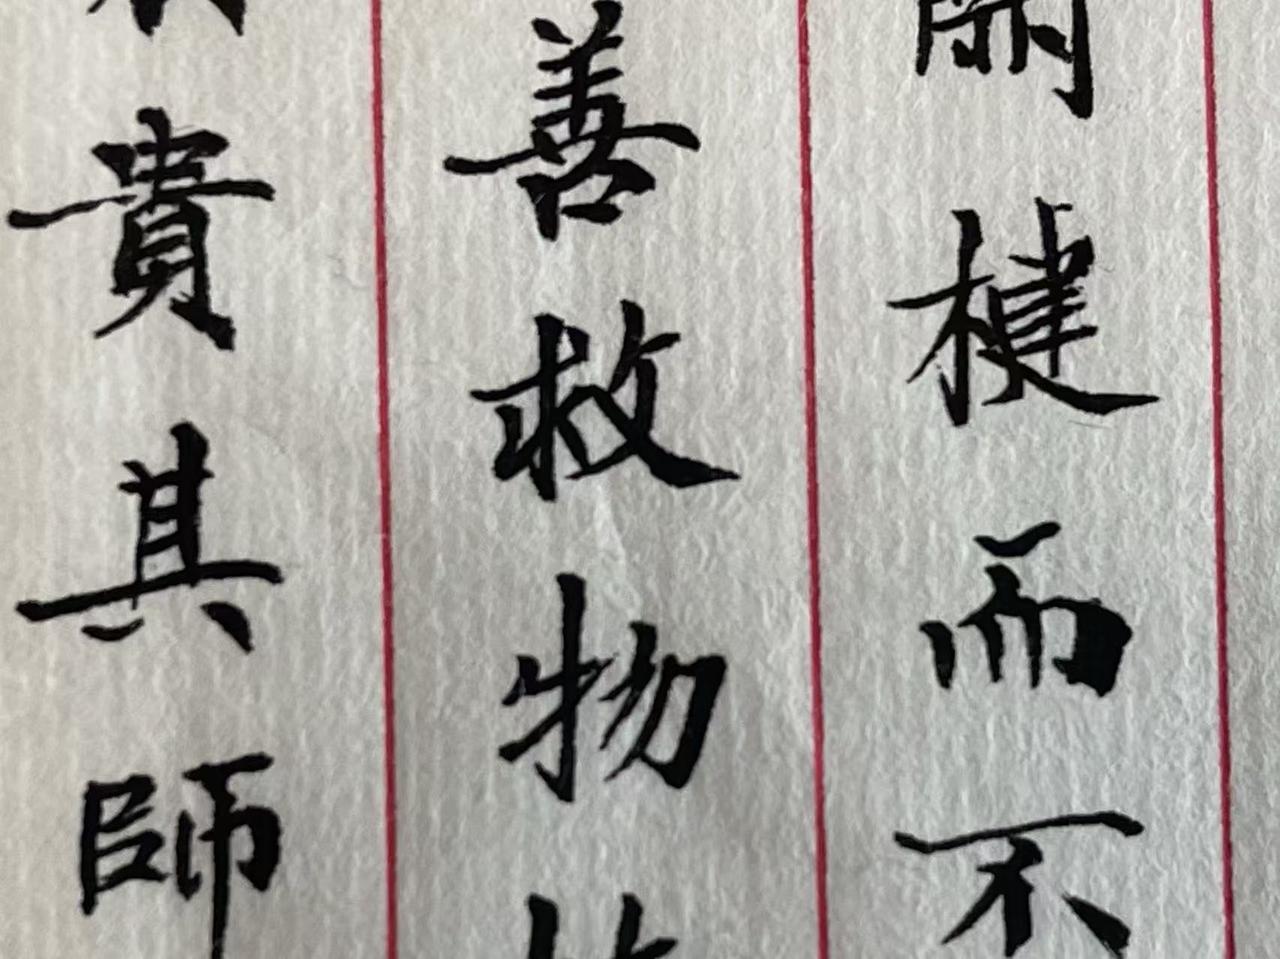 關楗而不
善救物故
貴其師